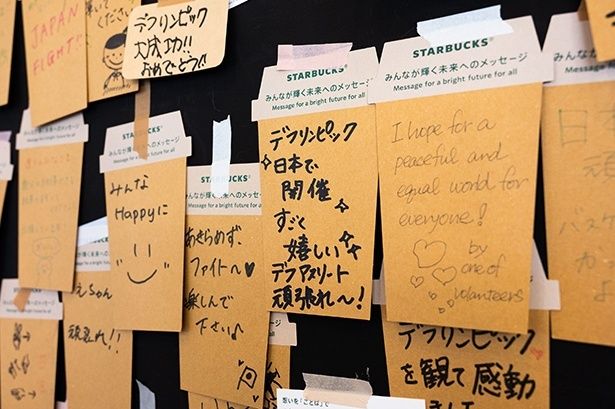 JAPAN
FIGHT!!
てください
デフリンピック
大成功!!
おめでとう!
STARBUCKS®
みんなが輝く未来へのメッセージ
Message for a bright future for all
みんな
Happyに
STARBUCKS®
みんなが輝く未来へのメッセージ
Message for a bright future for all
あきらめず、
ファイト〜♥
楽しんで
下さい♪
STARBUCKS®
みんなが輝く未来へのメッセージ
Message for a bright future for all
デフリンピック
日本で
開催
すごく
嬉しい
デフアスリート
頑張れ〜!
STARBUCKS®
みんなが輝く未来へのメッセージ
Message for a bright future for all
I hope for a
peaceful and
equal world for
everyone!
by
one of
volunteers
みんなが輝く未来
Message for a brigh
日
みんなが輝く未来へのメッセージ
Message for a bright future for all
えちゃん
頑張れ!!
デフリンピック
を観て感動
しまし
想いを「ことば」で